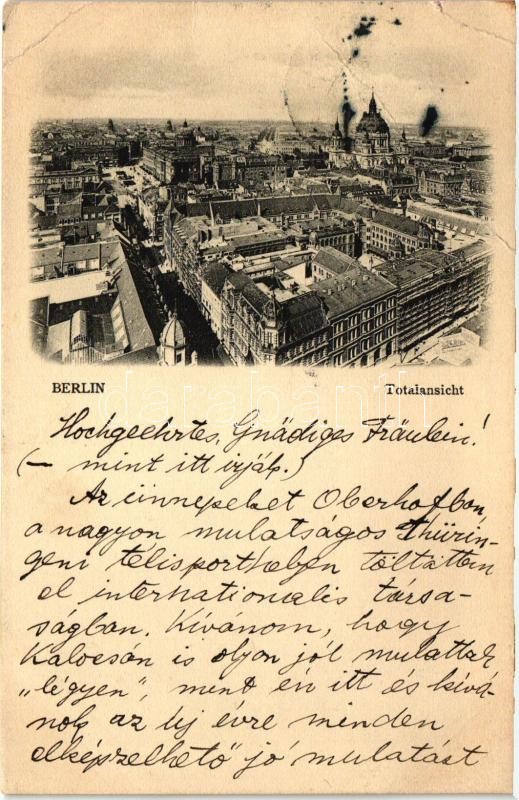 BERLIN
Totalansicht
darabanth
Hochgeehrtes, Gnädiges Fräulein!
(— mint itt irják.)
Az ünnepeket Oberhofban,
a nagyon mulatságos Thürin-
geni télisporthelyen töltöttem
el internationalis társa-
ságban. Kívánom, hogy
Kalocsán is olyan jól mulattak
„légyen", ment én itt és kívá-
nok az új évre minden
elképzelhető jó mulatást